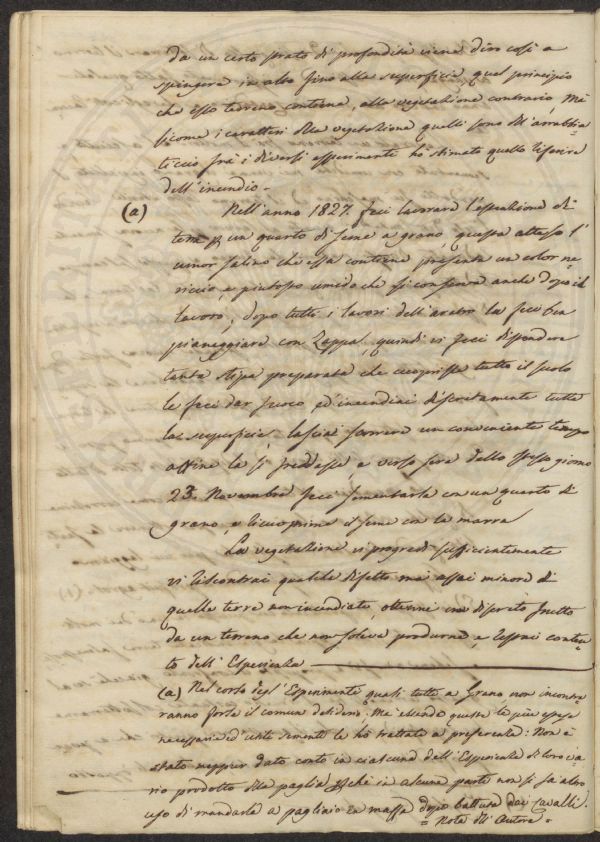 da un certo strato di profondità viene dirò così a
spingere in alto fino alla superficie quel principio
che esso terreno contiene, alla vegetazione contrario. Mà
sicome i caratteri della vegetazione quelli sono dell'arrabbia=
ticcio frà i diversi esperimenti hò stimato quello riferire
dell'incendio.
(a) Nell'anno 1827. feci lavorare l'estenzione di
terre p un quarto di seme a grano, questa atteso l'
umor salino che essa contiene presenta un color ne=
riccio, e piutosto umido che si conserva anche dopo il
lavoro; dopo tutti i lavori dell'aratro la feci ben
pianeggiare con Zappa, quindi vi feci disponere
tanta stipa preparata che cuoprisse tutto il suolo
le feci dar fuoco ed incendiai discretamente tutta
la superficie, lasciai scorrere un conveniente tempo
affine la si freddasse, e verso sera dello stesso giorno
23. Novembre feci sementarla con un quarto di
grano, e ricuoprirne il seme con la marra
La vegetazione vi progredì sufficientemente
vi riscontrai qualche difetto mà assai minore di
quelle terre non incendiate, ottenni un discreto frutto
da un terreno che non soleva produrne, e restai conten=
to dell'Esperienza
(a) Nel corso degl'Esperimenti quasi tutti a Grano non incont=
ranno forse il comun desiderio: Mà essendo queste le più spese
necessarie ed utili sementi le hò trattate a preferenza: Non è
stato neppur dato conto in ciascuna dell'Esperienze di loro va=
rio prodotto della paglia pchè in alcune parti non si fà altro
uso di mandarla a pagliaio in massa dopo battuta dai Cavalli.
= Nota dell'Autore =